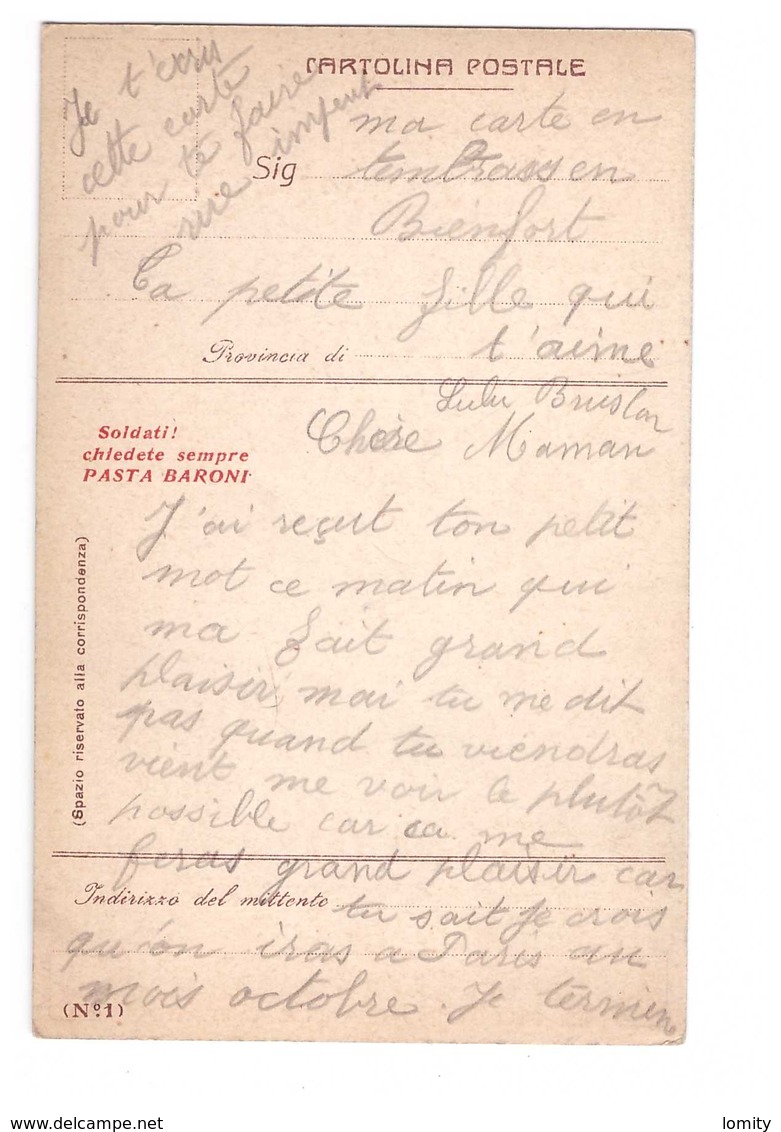 CARTOLINA POSTALE
Je t'ecris
cette carte
pour te faire
Sig
ma carte en
Bienfort
Ta petite fille qui
Provincia di
t'aime
Lulu
Soldati!
chiedete sempre
PASTA BARONI
(Spazio riservato alla corrispondenza)
Chere Maman
J'ai reçut ton petit
mot ce matin qui
ma fait grand
plaisir, mai tu me dit
pas quand tu viendras
vient me voir le plutôt
possible car ca me
feras grand plaisir car
Indirizzo del mittente
tu sait Je crois
qu'on iras a Paris au
mois octobre. Je termine
(Nº.1)
lomity